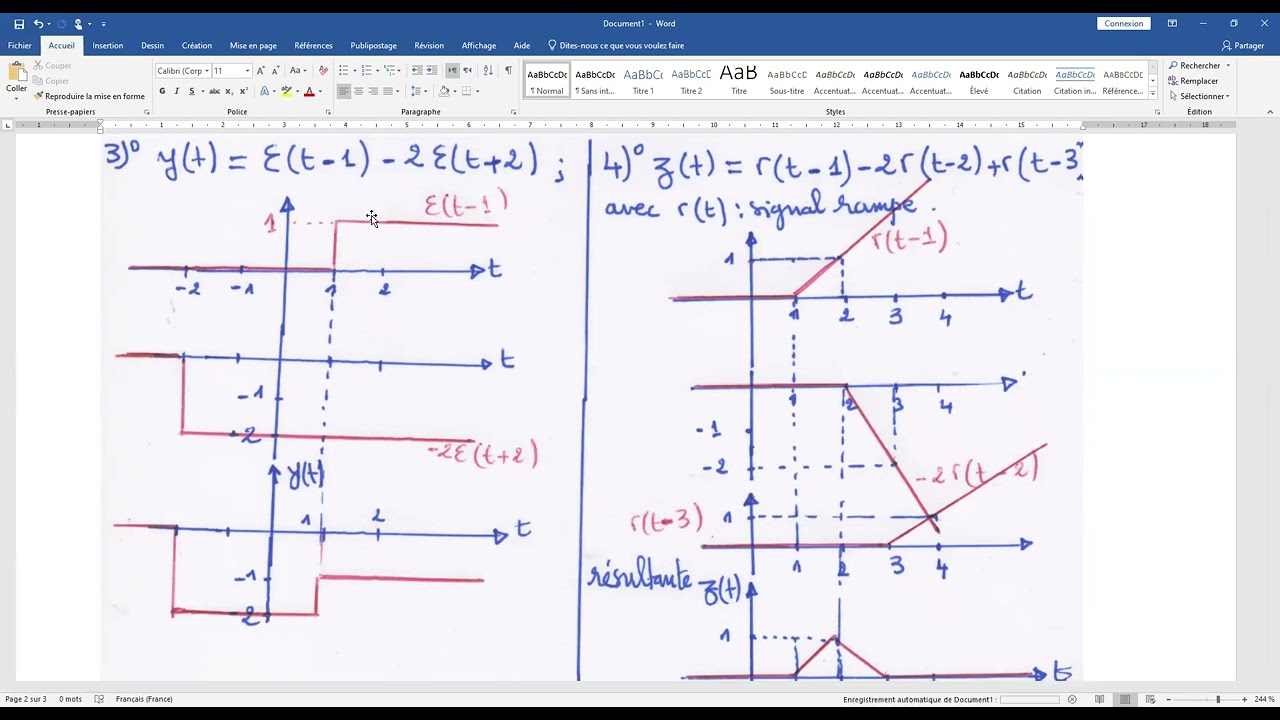 Document1 - Word
Connexion
Fichier Accueil Insertion Dessin Création Mise en page Références Publipostage Révision Affichage Aide Dites-nous ce que vous voulez faire Partager
Coller
Couper
Copier
Reproduire la mise en forme
Presse-papiers
Calibri (Corp 11
G I S abc x₂ x²
Police
Paragraphe
AaBbCcDc AaBbCcDc AaBbCc AaBbCcC AaB AaBbCcC AaBbCcDc AaBbCcDc AaBbCcDc AaBbCcDc AaBbCcDc AaBbCcDc AaBbCcDc
¶ Normal ¶ Sans int... Titre 1 Titre 2 Titre Sous-titre Accentuat... Accentuat... Accentuat... Élevé Citation Citation in... Référence...
Styles
Rechercher
Remplacer
Sélectionner
Édition
1 1 2 3 4 5 6 7 8 9 10 11 12 13 14 15 16 17 18
3)° y(t) = ε(t-1) - 2ε(t+2) ;
1 ε(t-1)
t
-2 -1 1 2
t
-1
-2
-2ε(t+2)
y(t)
1 2 t
-1
-2
4)° z(t) = r(t-1)-2r(t-2)+r(t-3)
avec r(t) : signal rampe.
r(t-1)
1
t
1 2 3 4
1 2 3 4
-1
-2
-2r(t-2)
r(t-3) 1
1 2 3 4
résultante z(t)
1
t
Page 2 sur 3 0 mots Français (France) Enregistrement automatique de Document1 : 244 %